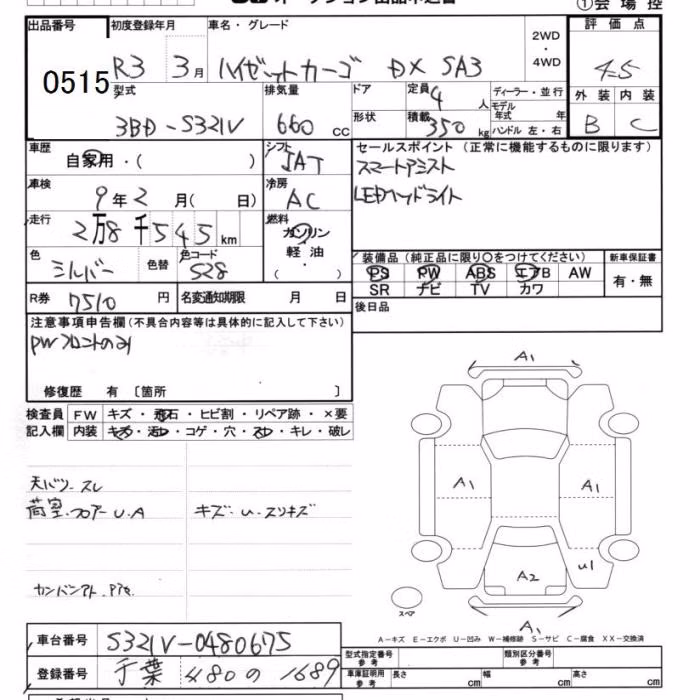 ①会場控
出品番号 初度登録年月 車名・グレード 2WD・4WD 評価点
0515 R3 3月 ハイゼットカーゴ DX SA3 4.5
型式 排気量 ドア 定員 4人 ディーラー・並行 外装 内装
3BD-S321V 660cc 形状 積載 350kg モデル年式 年 ハンドル 左・右 B C
車歴 自家用・( ) シフト IAT セールスポイント (正常に機能するものに限ります)
スマートアシスト
車検 9年2月( 日) 冷房 AC LEDヘッドライト
走行 2万8千545km 燃料 ガソリン・軽油・( )
色 シルバー 色替 色コード S28
装備品(純正品に限り○をつけてください) 新車保証書
PS PW ABS エアB AW 有・無
SR ナビ TV カワ
R券 7510円 名変通知期限 月 日 後日品
注意事項申告欄(不具合内容等は具体的に記入して下さい)
PWフロントのみ
修復歴 有 〔箇所 〕
検査員 FW キズ・飛石・ヒビ割・リペア跡・×要
記入欄 内装 キズ・汚レ・コゲ・穴・スレ・キレ・破レ
天バリ、スレ
荷室・フロアー U.A キズ・U・スリキズ
カンバンアト.
A1
A1 A1
U1
A2
スペア
A1
A-キズ E-エクボ U-凹み W-補修跡 S-サビ C-腐食 XX-交換済
車台番号 S321V-0480675
登録番号 千葉 480 の 1689
型式指定番号 参考 類別区分番号 参考
車庫証明用 参考 長さ cm 幅 cm 高さ cm